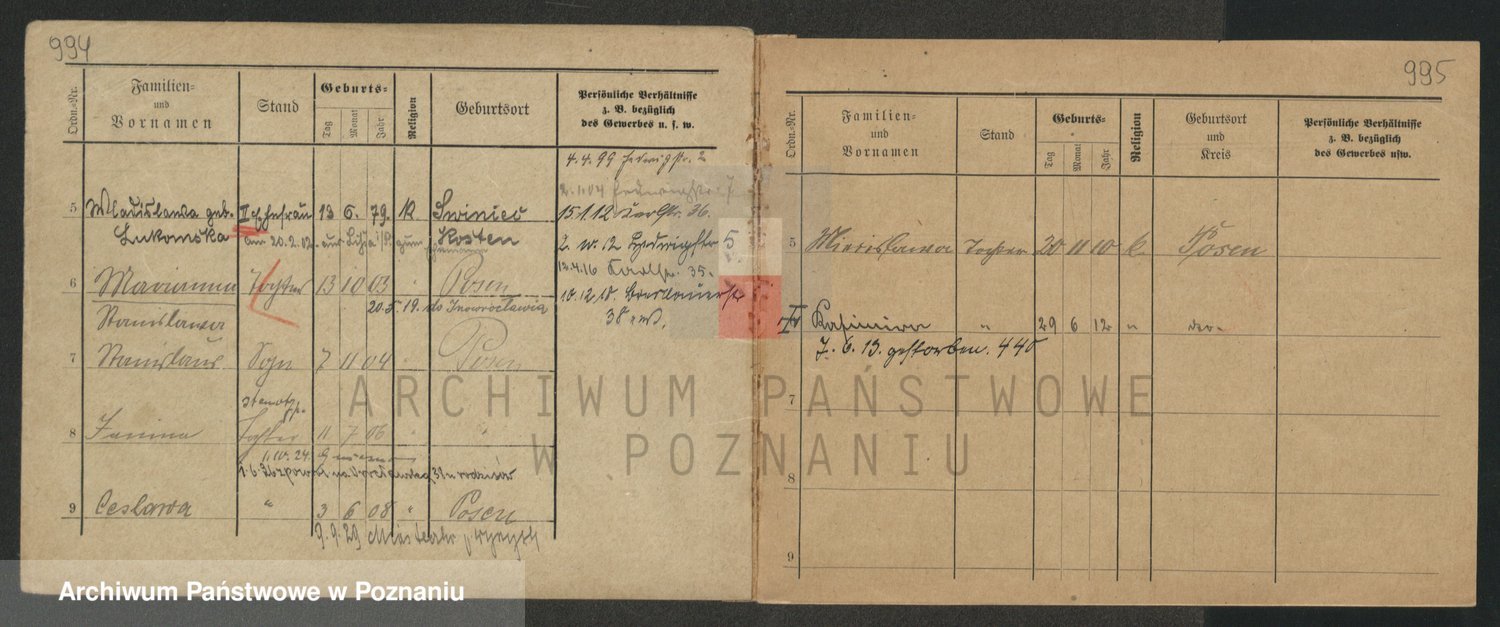 994
Ordn.-Nr.
Familien-
und
Vornamen
Stand
Geburts-
Tag
Monat
Jahr
Religion
Geburtsort
Persönliche Verhältnisse
z. B. bezüglich
des Gewerbes u. s. w.
4.4.99 Hedwigstr. 2
5 Wladislawa geb. II Ehefrau 13 6. 79. k. Swiniec 15.1.12 Karlstr. 36.
Lukomska am 20.2.02. aus zum Kosten
5
13.4.16 Karlstr. 35.
6 Marianna Tochter 13 10 03 Posen
20.5.19. do Inowrocławia
10.12.18. Breslauerstr
38
Stanislawa
7 Stanislaus Sohn 7 11 04 Posen
stenotyp.
8 Janina Tochter 11 7 06 "
1.10.24. Gniezno
1.6.26 z pow. na 31 u rodziców
9 Ceslawa " 3 6 08 " Posen
9.9.29
995
Ordn.-Nr.
Familien-
und
Vornamen
Stand
Geburts-
Tag
Monat
Jahr
Religion
Geburtsort
und
Kreis
Persönliche Verhältnisse
z. B. bezüglich
des Gewerbes usw.
5 Miecislawa Tochter 20 11 10 k. Posen
Kasimira " 29 6 12 " do-
7.6.13. gestorben. 440
7
8
9
ARCHIWUM PAŃSTWOWE
W POZNANIU
Archiwum Państwowe w Poznaniu